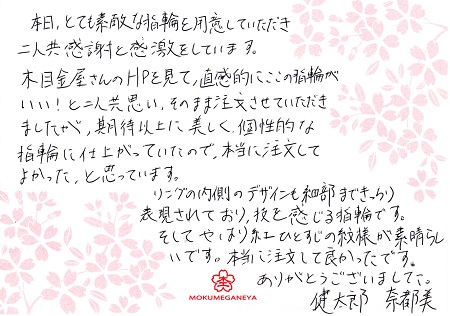 本日、とても素敵な指輪を用意していただき
二人共感謝と感激をしています。
木目金屋さんのHPを見て、直感的にここの指輪が
いい！と二人共思い、そのまま注文させていただき
ましたが、期待以上に美しく、個性的な
指輪に仕上がっていたので、本当に注文して
よかった、と思っています。
リングの内側のデザインも細部まできっちり
表現されており、技を感じる指輪です。
そしてやはり紅ひとすじの紋様が素晴らし
いです。本当に注文して良かったです。
ありがとうございました。
健太郎 奈都美
MOKUMEGANEYA